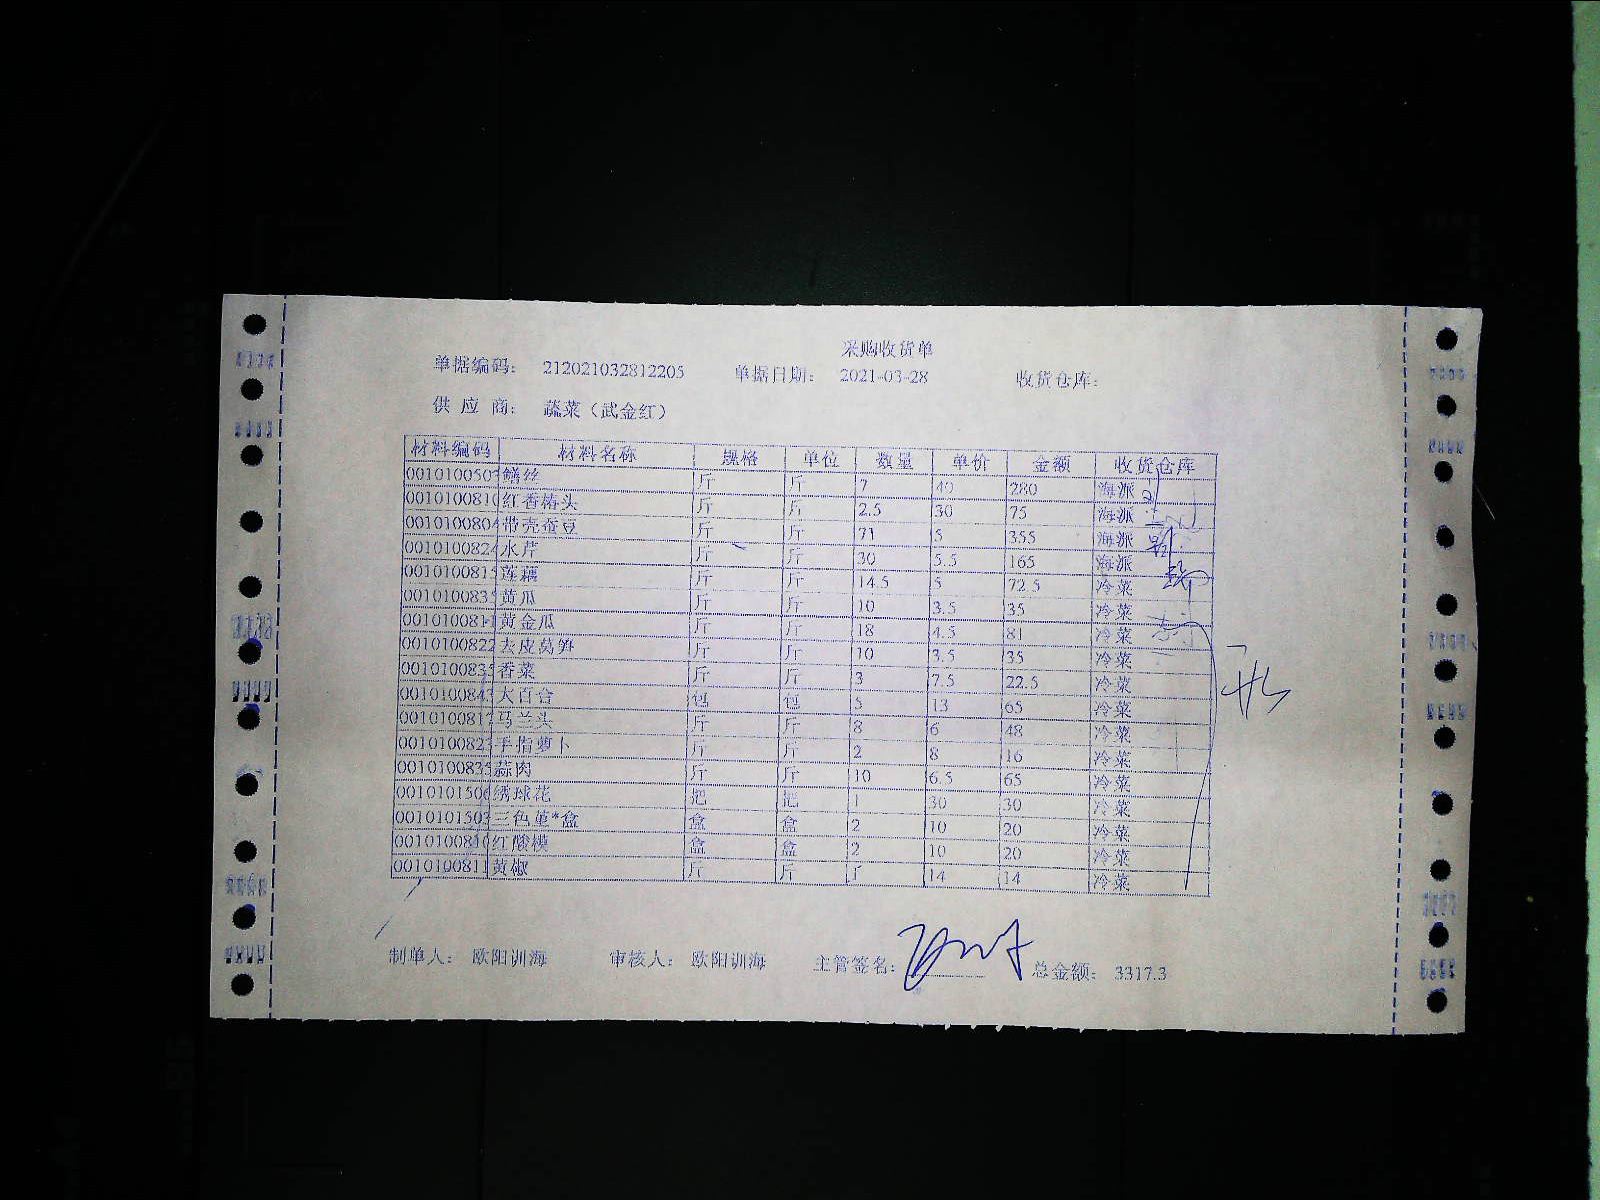 采购收货单
单据编码： 212021032812205 单据日期： 2021-03-28 收货仓库：
供 应 商： 蔬菜（武金红）
材料编码 材料名称 规格 单位 数量 单价 金额 收货仓库
001010050 鳝丝 斤 斤 7 40 280 海派
001010081 红香椿头 斤 斤 2.5 30 75 海派
001010080 带壳蚕豆 斤 斤 71 5 355 海派
001010082 水芹 斤 斤 30 5.5 165 海派
001010081 莲藕 斤 斤 14.5 5 72.5 冷菜
001010083 黄瓜 斤 斤 10 3.5 35 冷菜
001010081 黄金瓜 斤 斤 18 4.5 81 冷菜
001010082 去皮莴笋 斤 斤 10 3.5 35 冷菜
001010083 香菜 斤 斤 3 7.5 22.5 冷菜
001010084 大百合 包 包 5 13 65 冷菜
001010081 马兰头 斤 斤 8 6 48 冷菜
001010082 手指萝卜 斤 斤 2 8 16 冷菜
001010083 蒜肉 斤 斤 10 6.5 65 冷菜
001010150 绣球花 把 把 1 30 30 冷菜
001010150 三色堇*盒 盒 盒 2 10 20 冷菜
001010081 红酸模 盒 盒 2 10 20 冷菜
001010081 黄椒 斤 斤 1 14 14 冷菜
制单人： 欧阳训海 审核人： 欧阳训海 主管签名： 总金额： 3317.3